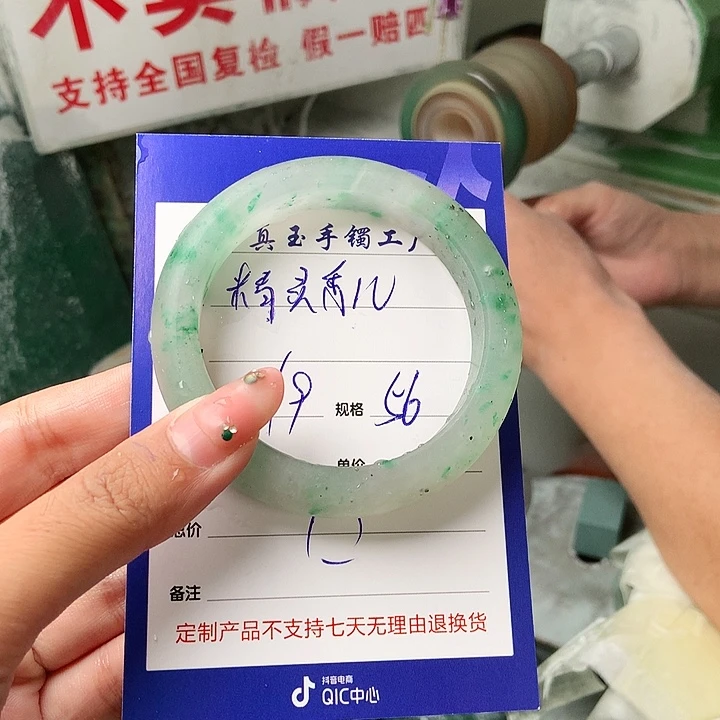 支持全国复检 假一赔四
真玉手镯工厂
19 规格 56
单价
总价 (一)
备注
定制产品不支持七天无理由退换货
抖音电商
QIC中心